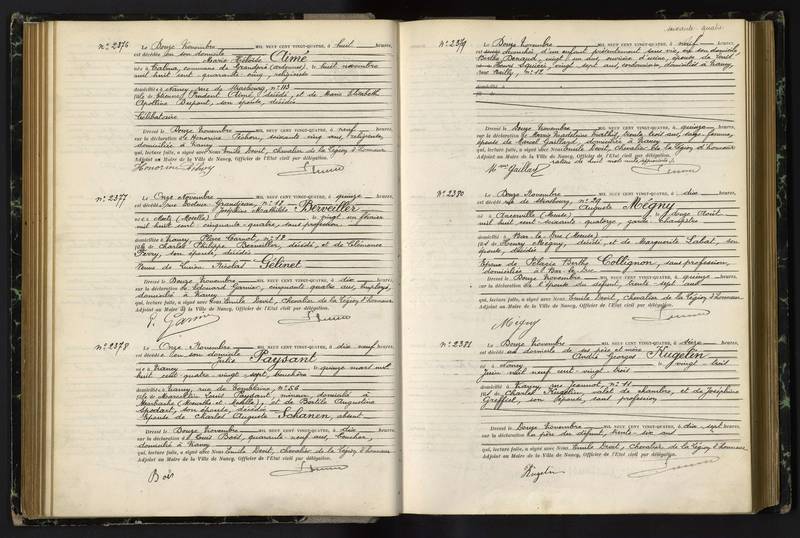 N° 2376
Le Douze Novembre MIL NEUF CENT VINGT-QUATRE, à huit heures,
est décédée en son domicile
Marie Héloïse Aimé
née à Talma, commune de Grandpré (Ardennes) le huit novembre
mil huit cent quarante cinq, religieuse
domiciliée à Nancy, rue de Strasbourg, n° 113
fille de Etienne Prudent Aimé, décédé, et de Marie Elisabeth
Apolline Dupont, son épouse, décédée
Célibataire
Dressé le Douze Novembre MIL NEUF CENT VINGT-QUATRE, à neuf heures,
sur la déclaration de Honorine Pichon, soixante cinq ans, religieuse,
domiciliée à Nancy
qui, lecture faite, a signé avec Nous Emile Devit, Chevalier de la Légion d'honneur
Adjoint au Maire de la Ville de Nancy, Officier de l'Etat civil par délégation.
Honorine Pichon
N° 2377
Le Onze Novembre MIL NEUF CENT VINGT-QUATRE, à quinze heures,
est décédée
Joséphine Mathilde Berveiller
née à Metz (Moselle) le vingt un février
mil huit cent cinquante-quatre, sans profession
domiciliée à Nancy, Place Carnot, n° 12
fille de Charles Philippe Berveiller, décédé, et de Clémence
Ferry, son épouse, décédée
Veuve de Lucien Nicolas Gélinet
Dressé le Douze Novembre MIL NEUF CENT VINGT-QUATRE, à dix heures,
sur la déclaration de Edouard Garnier, cinquante quatre ans, employé,
domicilié à Nancy
qui, lecture faite, a signé avec Nous Emile Devit, Chevalier de la Légion d'honneur
Adjoint au Maire de la Ville de Nancy, Officier de l'Etat civil par délégation.
E. Garnier
N° 2378
Le Onze Novembre MIL NEUF CENT VINGT-QUATRE, à dix neuf heures,
est décédée en son domicile
Julie Paysant
née à Nancy le quinze mars mil
huit cent quatre vingt-sept, bouchère
domiciliée à Nancy, rue de Tomblaine, n° 56
fille de Marcellin Louis Paysant, mineur, domicilié à
Marbache (Meurthe et Moselle), et de Bertile Augustine
son épouse, décédée
Epouse de Charles Auguste Schanen, absent
Dressé le Douze Novembre MIL NEUF CENT VINGT-QUATRE, à dix heures,
sur la déclaration de Louis Bois, quarante neuf ans, boucher,
domicilié à Nancy
qui, lecture faite, a signé avec Nous Emile Devit, Chevalier de la Légion d'honneur
Adjoint au Maire de la Ville de Nancy, Officier de l'Etat civil par délégation.
Bois
soixante quatre
N° 2379
Le Douze Novembre MIL NEUF CENT VINGT-QUATRE, à neuf heures,
est accouchée d'un enfant présentement sans vie, en son domicile,
Berthe Beraud, vingt un ans, ouvrière d'usine, épouse de
Henri vingt sept ans, cordonnier, domiciliés à Nancy,
rue n° 12
domicilié à
fil de
Dressé le Douze Novembre MIL NEUF CENT VINGT-QUATRE, à quinze heures,
sur la déclaration de Marie Madeleine Mathis, trente trois ans, sage-femme,
épouse de Marcel Gaillard, domiciliée à Nancy
qui, lecture faite, a signé avec Nous Emile Devit, Chevalier de la Légion d'honneur
Adjoint au Maire de la Ville de Nancy, Officier de l'Etat civil par délégation.
Mme Gaillard
N° 2380
Le Douze Novembre MIL NEUF CENT VINGT-QUATRE, à dix heures,
est décédé rue de Strasbourg, n° 29
Auguste Mégny
né à Ancerville (Meuse) le douze Août
mil huit cent soixante quatorze, garde champêtre
domicilié à Bar-le-Duc (Meuse)
fils de Henry Mégny, décédé, et de Marguerite Labat, son
épouse, décédée
Epoux de Pélagie Berthe Collignon, sans profession,
domiciliée à Bar-le-Duc
Dressé le Douze Novembre MIL NEUF CENT VINGT-QUATRE, à quinze heures,
sur la déclaration de l'épouse du défunt, trente-sept ans
qui, lecture faite, a signé avec Nous Emile Devit, Chevalier de la Légion d'honneur
Adjoint au Maire de la Ville de Nancy, Officier de l'Etat civil par délégation.
Mégny
N° 2381
Le Douze Novembre MIL NEUF CENT VINGT-QUATRE, à seize heures,
est décédé au domicile de ses père et mère
André Georges Kugelin
né à Nancy le vingt trois
Juin mil neuf cent vingt trois
domicilié à Nancy, rue Jeannot, n° 11
fils de Charles Kugelin, valet de chambre, et de Joséphine
Greffet, son épouse, sans profession
Dressé le Douze Novembre MIL NEUF CENT VINGT-QUATRE, à dix sept heures,
sur la déclaration du père du défunt, trente six ans
qui, lecture faite, a signé avec Nous Emile Devit, Chevalier de la Légion d'honneur
Adjoint au Maire de la Ville de Nancy, Officier de l'Etat civil par délégation.
Kugelin